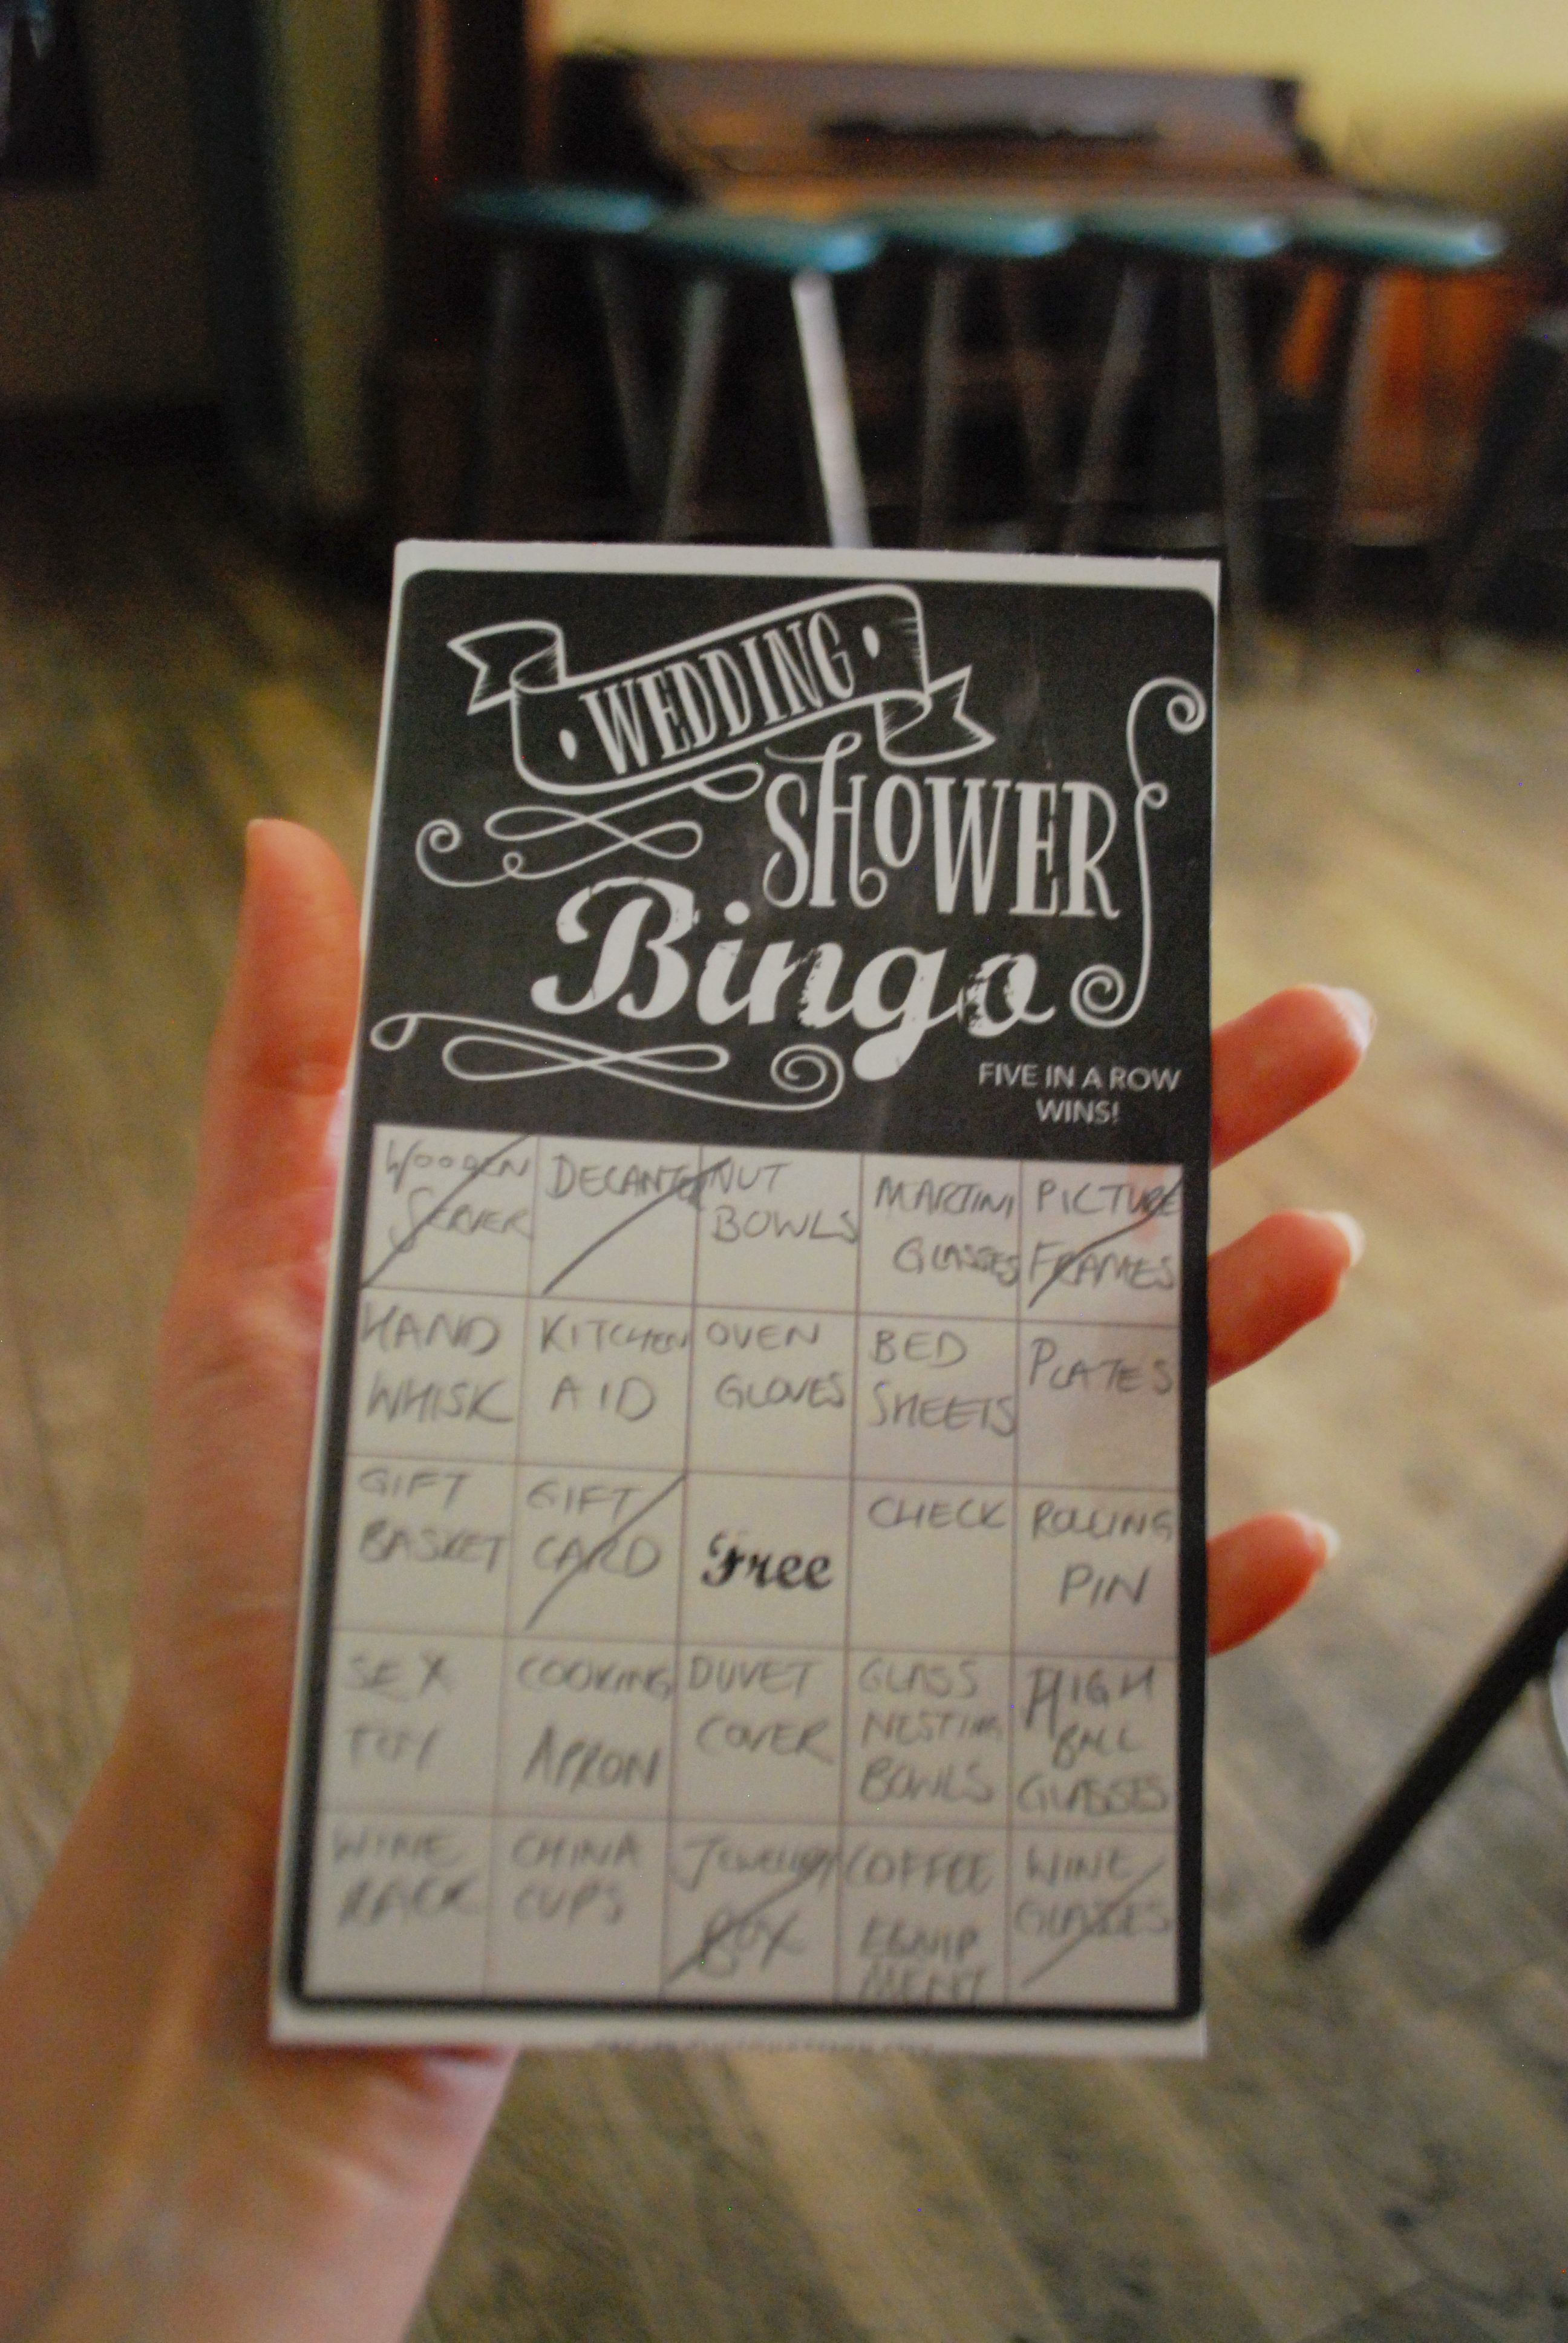 WEDDING
SHOWER
Bingo
FIVE IN A ROW
WINS!
WOODEN
SERVER
DECANTER
NUT
BOWLS
MARTINI
GLASSES
PICTURE
FRAMES
HAND
WHISK
KITCHEN
AID
OVEN
GLOVES
BED
SHEETS
PLATES
GIFT
BASKET
GIFT
CARD
Free
CHECK
ROLLING
PIN
SEX
TOY
COOKING
APRON
DUVET
COVER
GLASS
NESTING
BOWLS
HIGH
BALL
GLASSES
WINE
RACK
CHINA
CUPS
JEWELLERY
BOX
COFFEE
EQUIP
MENT
WINE
GLASSES